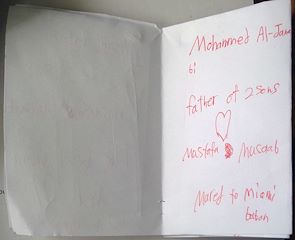 Mohammed Al-Jana
bi
father of 2 sons
Mustafa Musaab
Mared to Miami
baban